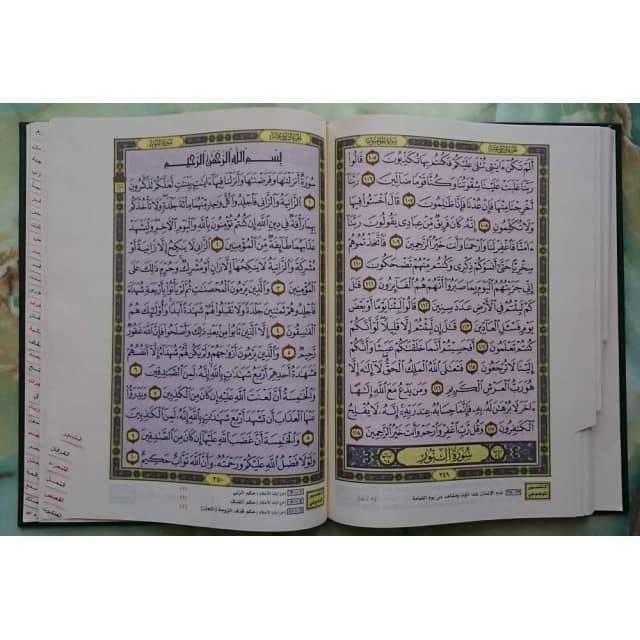 أَلَمْ تَكُنْ ءَايَٰتِى تُتْلَىٰ عَلَيْكُمْ فَكُنتُم بِهَا تُكَذِّبُونَ ١٠٥ قَالُوا۟
رَبَّنَا غَلَبَتْ عَلَيْنَا شِقْوَتُنَا وَكُنَّا قَوْمًا ضَآلِّينَ ١٠٦ رَبَّنَآ
أَخْرِجْنَا مِنْهَا فَإِنْ عُدْنَا فَإِنَّا ظَٰلِمُونَ ١٠٧ قَالَ ٱخْسَـُٔوا۟ فِيهَا
وَلَا تُكَلِّمُونِ ١٠٨ إِنَّهُۥ كَانَ فَرِيقٌ مِّنْ عِبَادِى يَقُولُونَ رَبَّنَآ
ءَامَنَّا فَٱغْفِرْ لَنَا وَٱرْحَمْنَا وَأَنتَ خَيْرُ ٱلرَّٰحِمِينَ ١٠٩ فَٱتَّخَذْتُمُوهُمْ
سِخْرِيًّا حَتَّىٰٓ أَنسَوْكُمْ ذِكْرِى وَكُنتُم مِّنْهُمْ تَضْحَكُونَ ١١٠
إِنِّى جَزَيْتُهُمُ ٱلْيَوْمَ بِمَا صَبَرُوٓا۟ أَنَّهُمْ هُمُ ٱلْفَآئِزُونَ ١١١ قَٰلَ
كَمْ لَبِثْتُمْ فِى ٱلْأَرْضِ عَدَدَ سِنِينَ ١١٢ قَالُوا۟ لَبِثْنَا يَوْمًا أَوْ بَعْضَ
يَوْمٍ فَسْـَٔلِ ٱلْعَآدِّينَ ١١٣ قَٰلَ إِن لَّبِثْتُمْ إِلَّا قَلِيلًا لَّوْ أَنَّكُمْ
كُنتُمْ تَعْلَمُونَ ١١٤ أَفَحَسِبْتُمْ أَنَّمَا خَلَقْنَٰكُمْ عَبَثًا وَأَنَّكُمْ
إِلَيْنَا لَا تُرْجَعُونَ ١١٥ فَتَعَٰلَى ٱللَّهُ ٱلْمَلِكُ ٱلْحَقُّ لَآ إِلَٰهَ إِلَّا
هُوَ رَبُّ ٱلْعَرْشِ ٱلْكَرِيمِ ١١٦ وَمَن يَدْعُ مَعَ ٱللَّهِ إِلَٰهًا
ءَاخَرَ لَا بُرْهَٰنَ لَهُۥ بِهِۦ فَإِنَّمَا حِسَابُهُۥ عِندَ رَبِّهِۦٓ إِنَّهُۥ لَا يُفْلِحُ
ٱلْكَٰفِرُونَ ١١٧ وَقُل رَّبِّ ٱغْفِرْ وَٱرْحَمْ وَأَنتَ خَيْرُ ٱلرَّٰحِمِينَ ١١٨
سُورَةُ النُّورِ
٣٤٩
بِسْمِ ٱللَّهِ ٱلرَّحْمَٰنِ ٱلرَّحِيمِ
سُورَةٌ أَنزَلْنَٰهَا وَفَرَضْنَٰهَا وَأَنزَلْنَا فِيهَآ ءَايَٰتٍۭ بَيِّنَٰتٍ لَّعَلَّكُمْ تَذَكَّرُونَ
١ ٱلزَّانِيَةُ وَٱلزَّانِى فَٱجْلِدُوا۟ كُلَّ وَٰحِدٍ مِّنْهُمَا مِا۟ئَةَ جَلْدَةٍ وَلَا تَأْخُذْكُم
بِهِمَا رَأْفَةٌ فِى دِينِ ٱللَّهِ إِن كُنتُمْ تُؤْمِنُونَ بِٱللَّهِ وَٱلْيَوْمِ ٱلْءَاخِرِ وَلْيَشْهَدْ
عَذَابَهُمَا طَآئِفَةٌ مِّنَ ٱلْمُؤْمِنِينَ ٢ ٱلزَّانِى لَا يَنكِحُ إِلَّا زَانِيَةً أَوْ
مُشْرِكَةً وَٱلزَّانِيَةُ لَا يَنكِحُهَآ إِلَّا زَانٍ أَوْ مُشْرِكٌ وَحُرِّمَ ذَٰلِكَ عَلَى
ٱلْمُؤْمِنِينَ ٣ وَٱلَّذِينَ يَرْمُونَ ٱلْمُحْصَنَٰتِ ثُمَّ لَمْ يَأْتُوا۟ بِأَرْبَعَةِ شُهَدَآءَ
فَٱجْلِدُوهُمْ ثَمَٰنِينَ جَلْدَةً وَلَا تَقْبَلُوا۟ لَهُمْ شَهَٰدَةً أَبَدًا وَأُو۟لَٰٓئِكَ هُمُ
ٱلْفَٰسِقُونَ ٤ إِلَّا ٱلَّذِينَ تَابُوا۟ مِنۢ بَعْدِ ذَٰلِكَ وَأَصْلَحُوا۟ فَإِنَّ ٱللَّهَ غَفُورٌ
رَّحِيمٌ ٥ وَٱلَّذِينَ يَرْمُونَ أَزْوَٰجَهُمْ وَلَمْ يَكُن لَّهُمْ شُهَدَآءُ إِلَّآ أَنفُسُهُمْ
فَشَهَٰدَةُ أَحَدِهِمْ أَرْبَعُ شَهَٰدَٰتٍۭ بِٱللَّهِ إِنَّهُۥ لَمِنَ ٱلصَّٰدِقِينَ ٦
وَٱلْخَٰمِسَةُ أَنَّ لَعْنَتَ ٱللَّهِ عَلَيْهِ إِن كَانَ مِنَ ٱلْكَٰذِبِينَ ٧ وَيَدْرَؤُا۟
عَنْهَا ٱلْعَذَابَ أَن تَشْهَدَ أَرْبَعَ شَهَٰدَٰتٍۭ بِٱللَّهِ إِنَّهُۥ لَمِنَ ٱلْكَٰذِبِينَ
٨ وَٱلْخَٰمِسَةَ أَنَّ غَضَبَ ٱللَّهِ عَلَيْهَآ إِن كَانَ مِنَ ٱلصَّٰدِقِينَ ٩
وَلَوْلَا فَضْلُ ٱللَّهِ عَلَيْكُمْ وَرَحْمَتُهُۥ وَأَنَّ ٱللَّهَ تَوَّابٌ حَكِيمٌ ١٠
٣٥٠
الفرقان
الشعراء
النمل
القصص